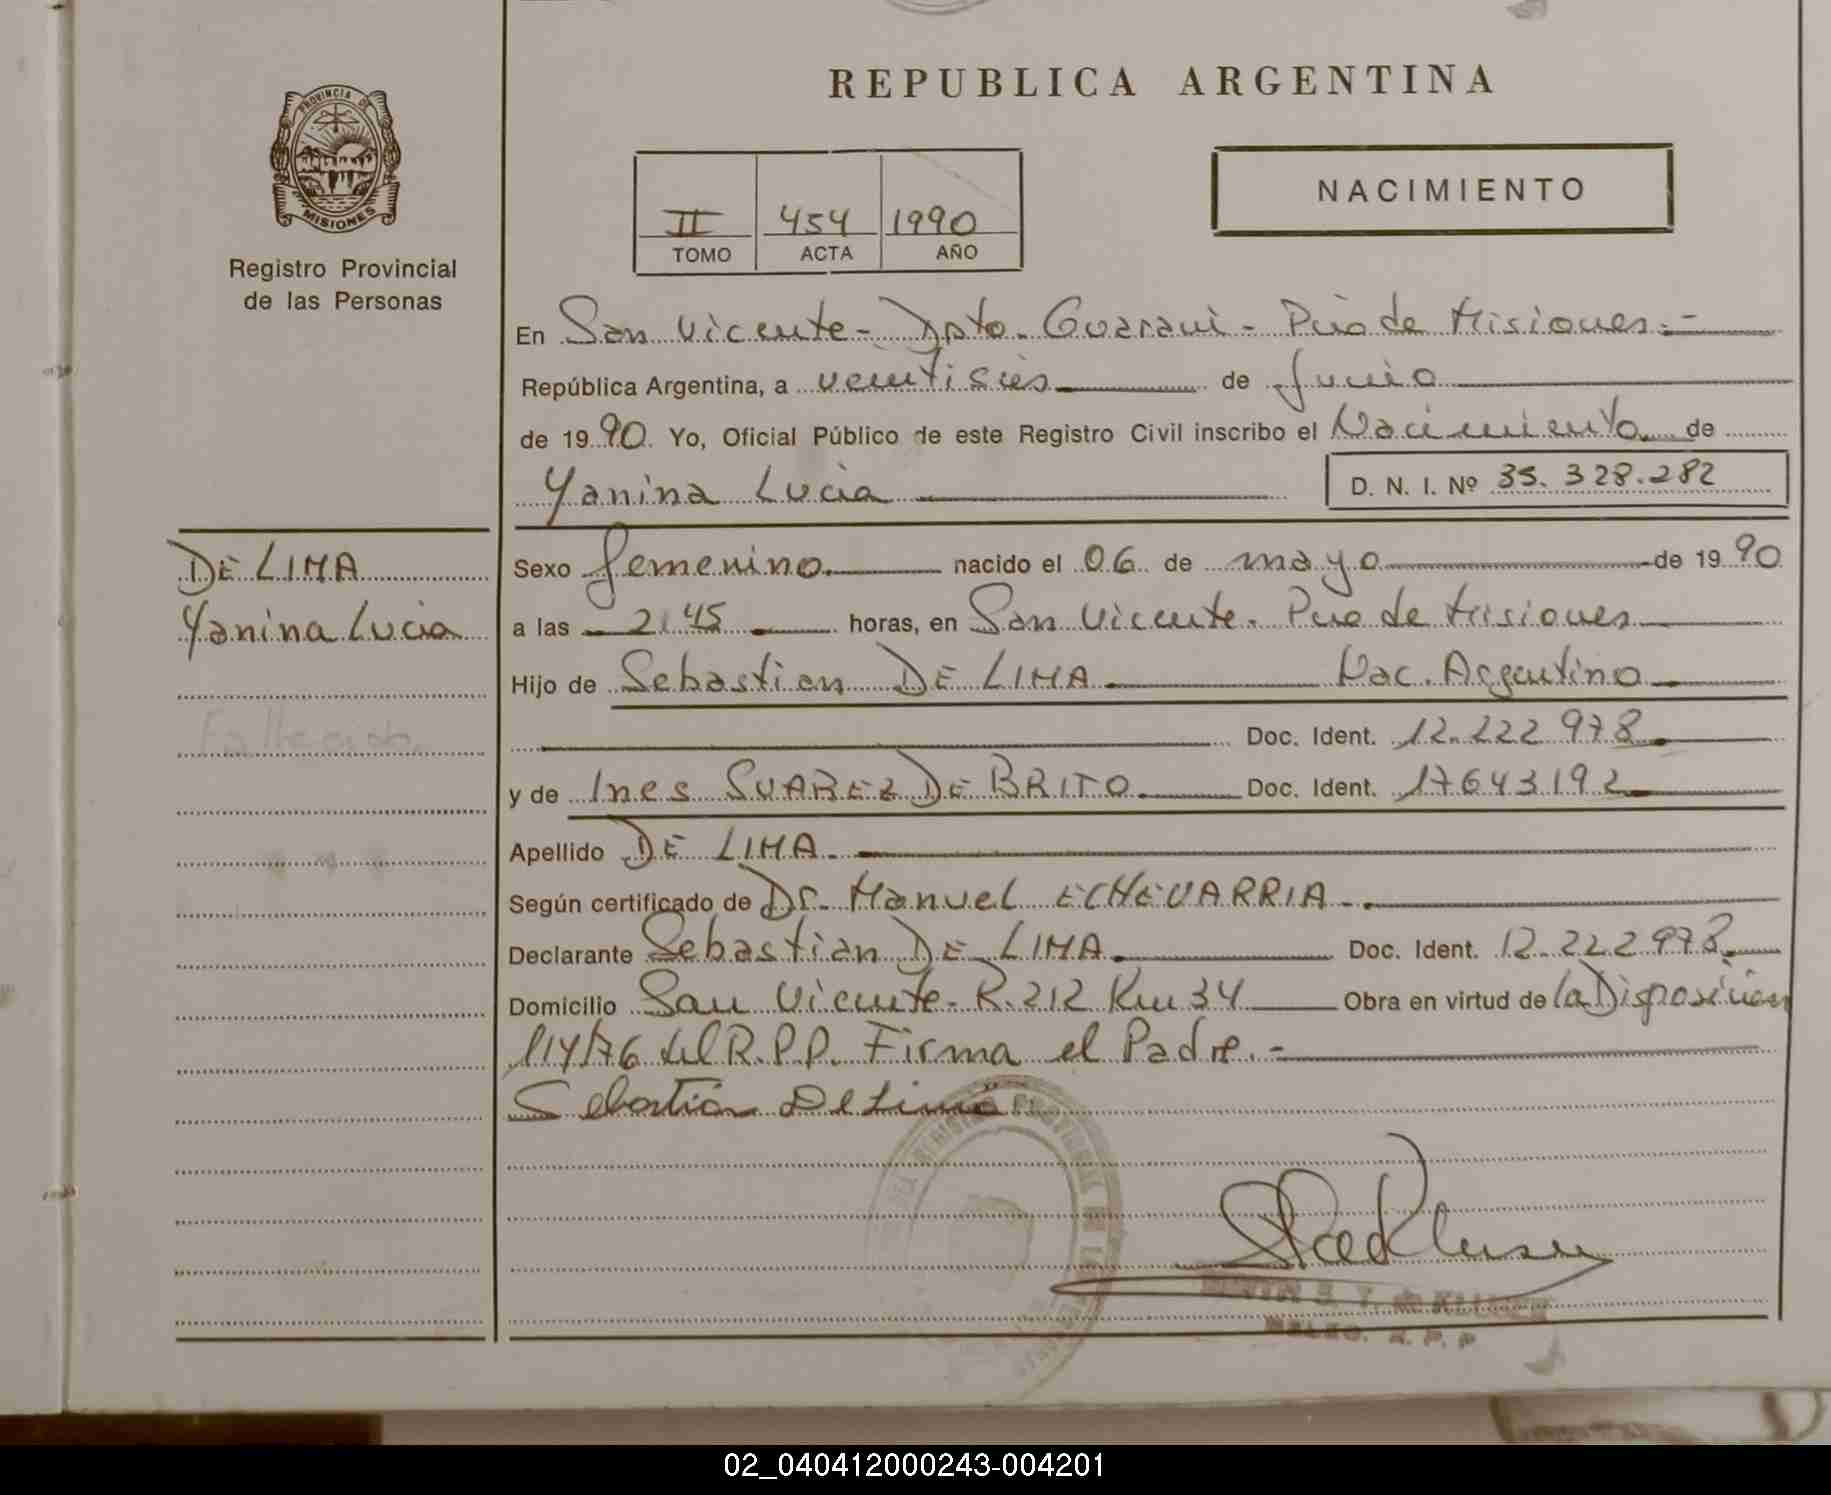 REPUBLICA ARGENTINA
PROVINCIA DE
MISIONES
Registro Provincial
de las Personas
NACIMIENTO
II 454 1990
TOMO ACTA AÑO
En San Vicente - Dpto. Guarani - Pcia de Misiones.-
República Argentina, a veintiseis de Junio
de 1990. Yo, Oficial Público de este Registro Civil inscribo el Nacimiento de
Yanina Lucia D. N. I. Nº 35.328.282
DE LIMA
Yanina Lucia
Fallecida
Sexo femenino. nacido el 06 de mayo de 1990
a las 21.45 horas, en San Vicente. Pcia de Misiones
Hijo de Sebastian DE LIMA. Nac. Argentino
Doc. Ident. 12.222.978
y de Ines SUAREZ DE BRITO. Doc. Ident. 17643192
Apellido DE LIMA.
Según certificado de Dr. Manuel ECHEVARRIA.
Declarante Sebastian DE LIMA. Doc. Ident. 12.222.978
Domicilio San Vicente - R. 212 Km 34 Obra en virtud de la Disposicion
114/76 del R.P.P. Firma el Padre.-
Sebastian De Lima
02_040412000243-004201